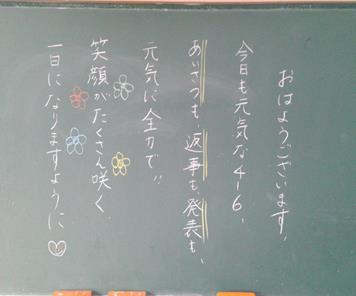 おはようございます。
今日も元気な4-6、
あいさつも、返事も、発表も、
元気に全力で!!
笑顔がたくさん咲く
一日になりますように♡